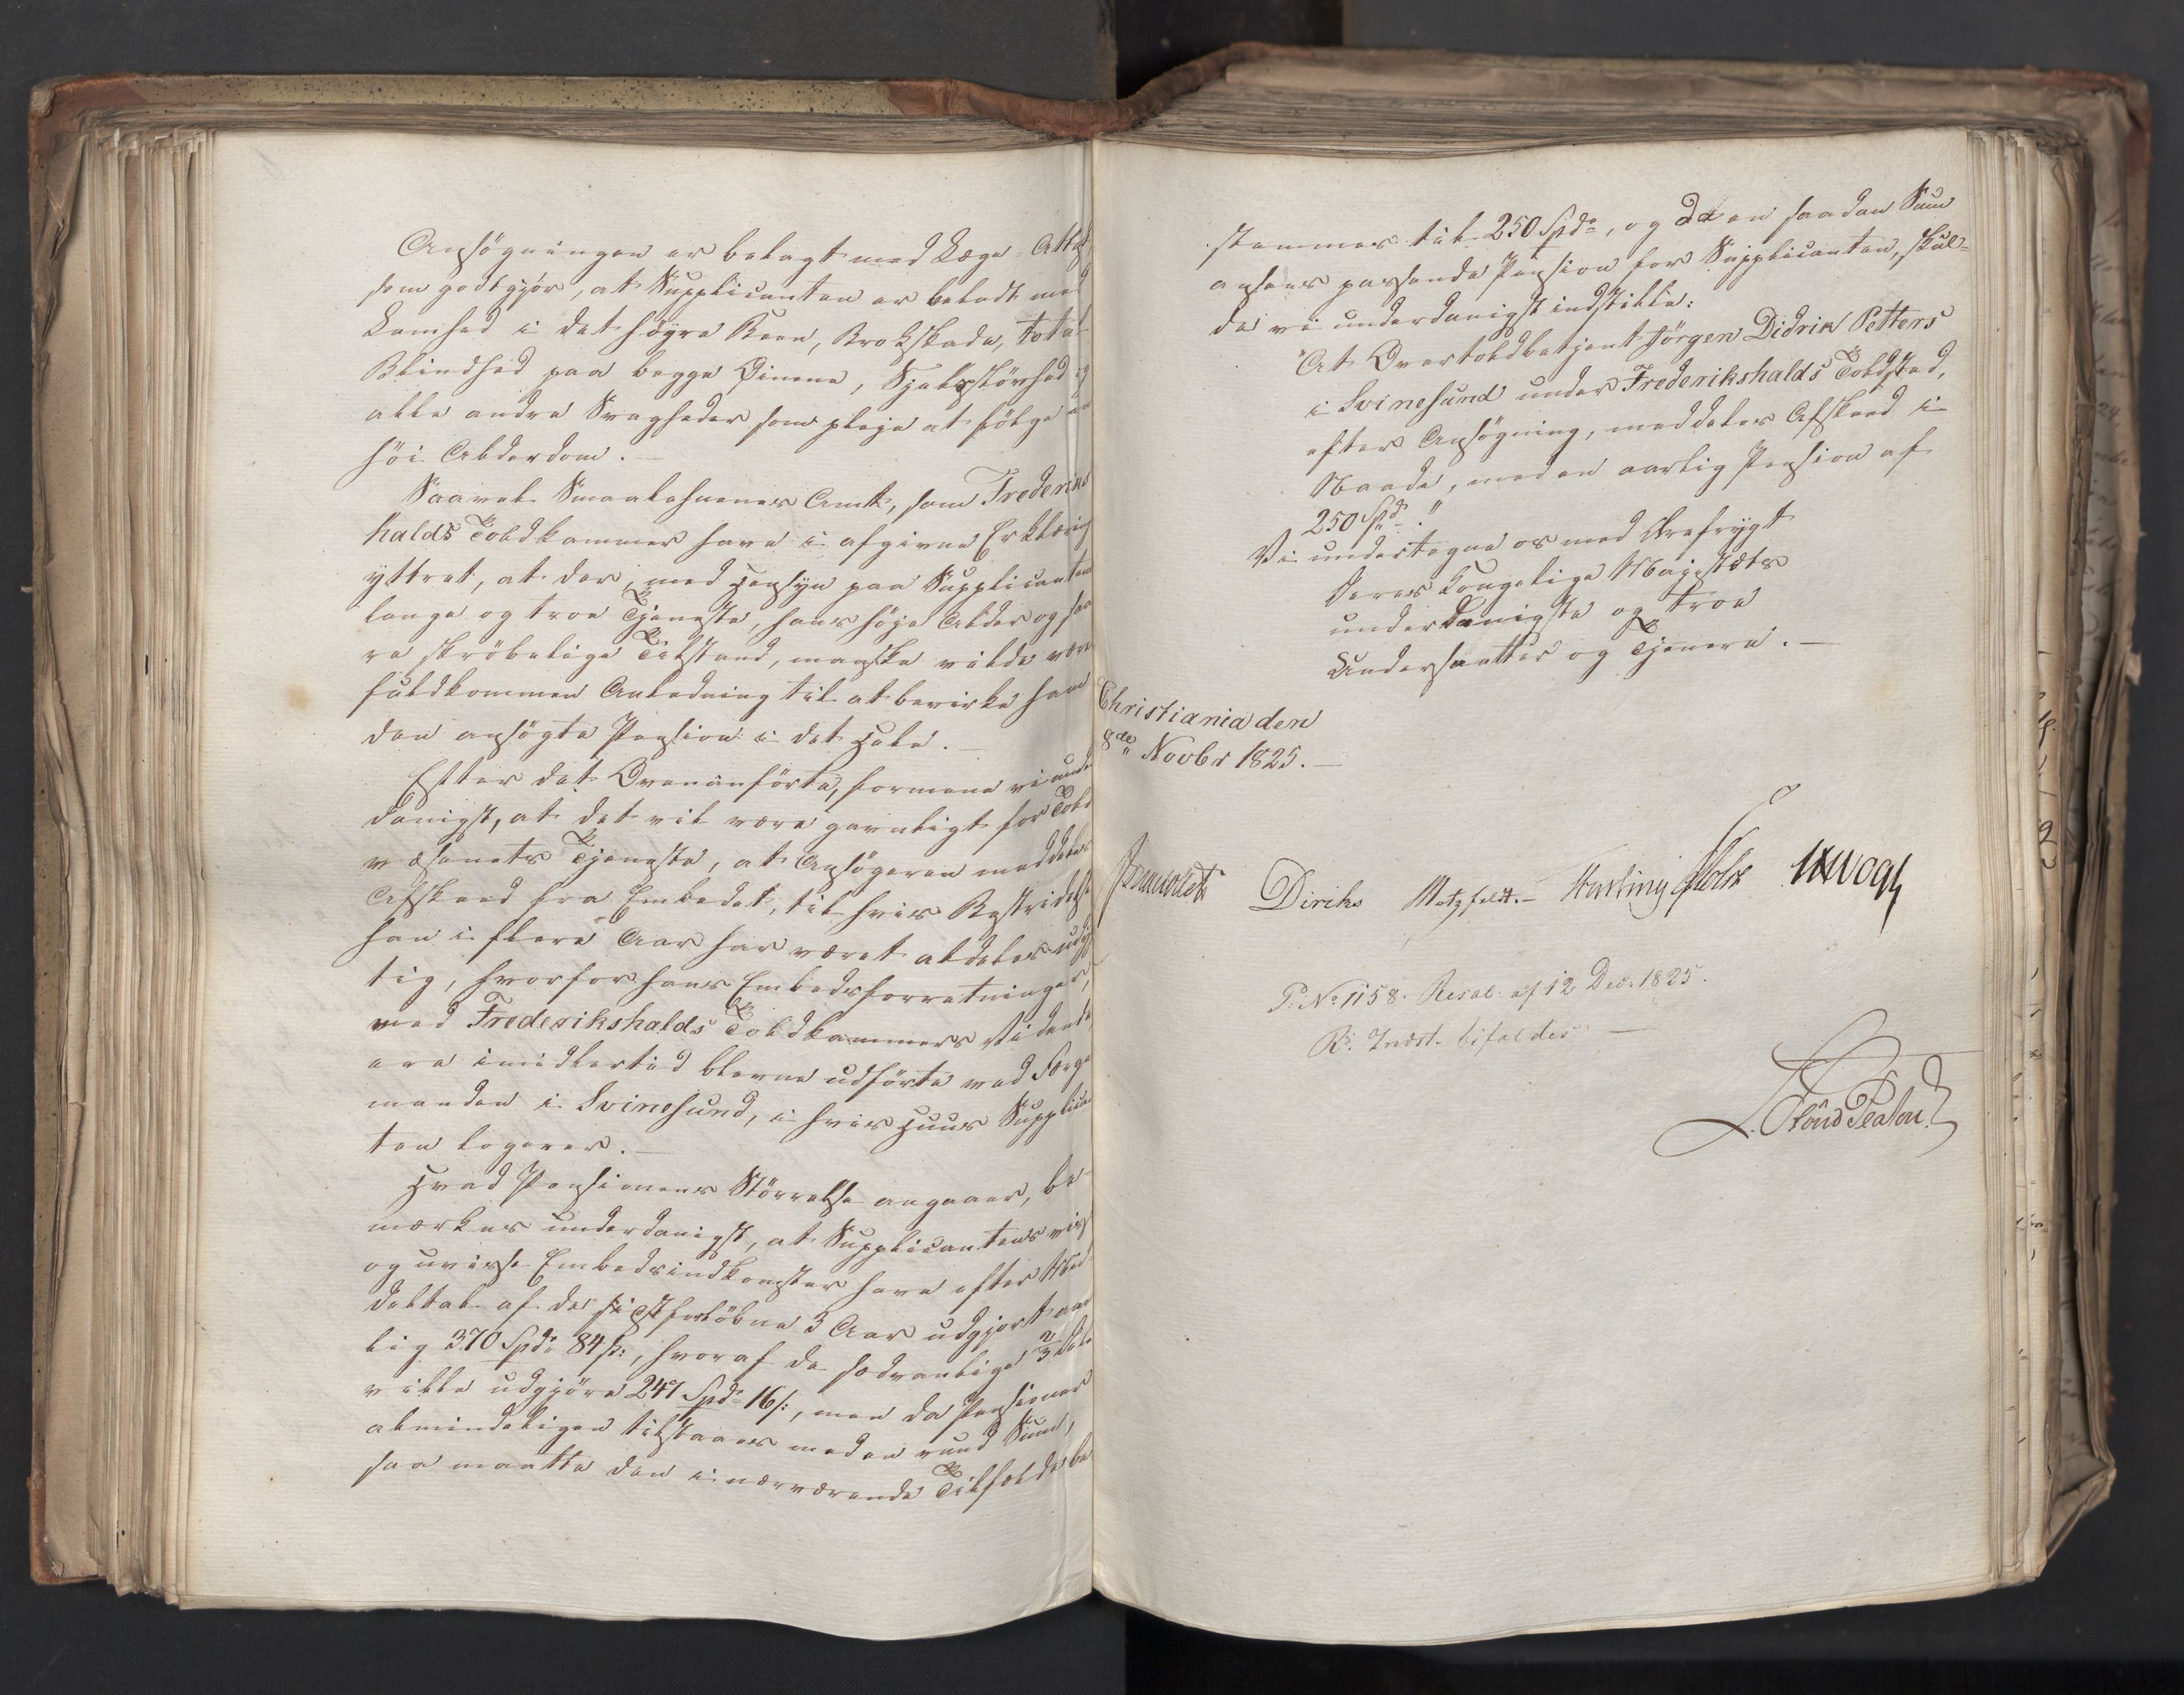 Ansögningen er belagt med Læge-Attest
som godtgjör, at Supplicanten er beladt med
Lamhed i det høyre Been, Brokskade, total
Blindhed paa begge Öinene, Sjelsslövhed og
alle andre Svagheder som pleje at fölge en
höi Alderdom. —
Saavel Smaalehnenes Amt, som Frederiks
halds Toldkammer have i afgivne Erklæring
yttret, at der, med Hensyn paa Supplicantens
lange og troe Tjeneste, hans höje Alder og saa
re skröbelige Tilstand, maaske vilde være
fuldkommen Anledning til at bevirke ham
den ansögte Pension i det Hele. —
Efter det Ovenanförte, formene vi under
danigst, at det vil være gavnligt for Told
væsenets Tjeneste, at Ansögeren meddeles
Afskeed fra Embedet, til hvis Bestridelse
han i flere Aar har været aldeles udyg
tig, hvorfor hans Embedsforretninger,
med Frederikshalds Toldkammers Vidende
ere imidlertid blevne udförte ved Færge
manden i Svinesund, i hvis Huus Supplican
ten logerer. —
Hvad Pensionens Störrelse angaaer, be-
mærkes underdanigst, at Supplicantens visse
og uvisse Embedsindkomster have efter Med
deltal af de sidstforlöbne 3 Aar udgjort aar
lig 370 Spd. 84 s:, hvoraf de sædvanlige 2/3 Dele
ville udgjöre 247 Spd. 16 s:, men da Pensioner
almindeligen tilstaaes med en rund Sum,
saa maatte den i nærværende Tilfælde be
stemmes til 250 Spd., og da en saadan Sum
ansees passende Pension for Supplicanten, skul-
de vi underdanigst indstille:
"At Overtoldbetjent Jörgen Didrik Petters
i Svinesund under Frederikshalds Toldsted,
efter Ansögning, meddeles Afskeed i
Naade, med en aarlig Pension af
250 Spd."
Vi undertegne os med Ærefrygt
Deres Kongelige Majestæts
underdanigste og troe
Undersaatter og Tjenere. —
Christiania den
8de Novbr 1825. —
Diriks Motzfeldt. Fasting Holst JHVogt
P. No 1158. Resol. af 12 Dec. 1825.
Rs. Indst. bifaldes —